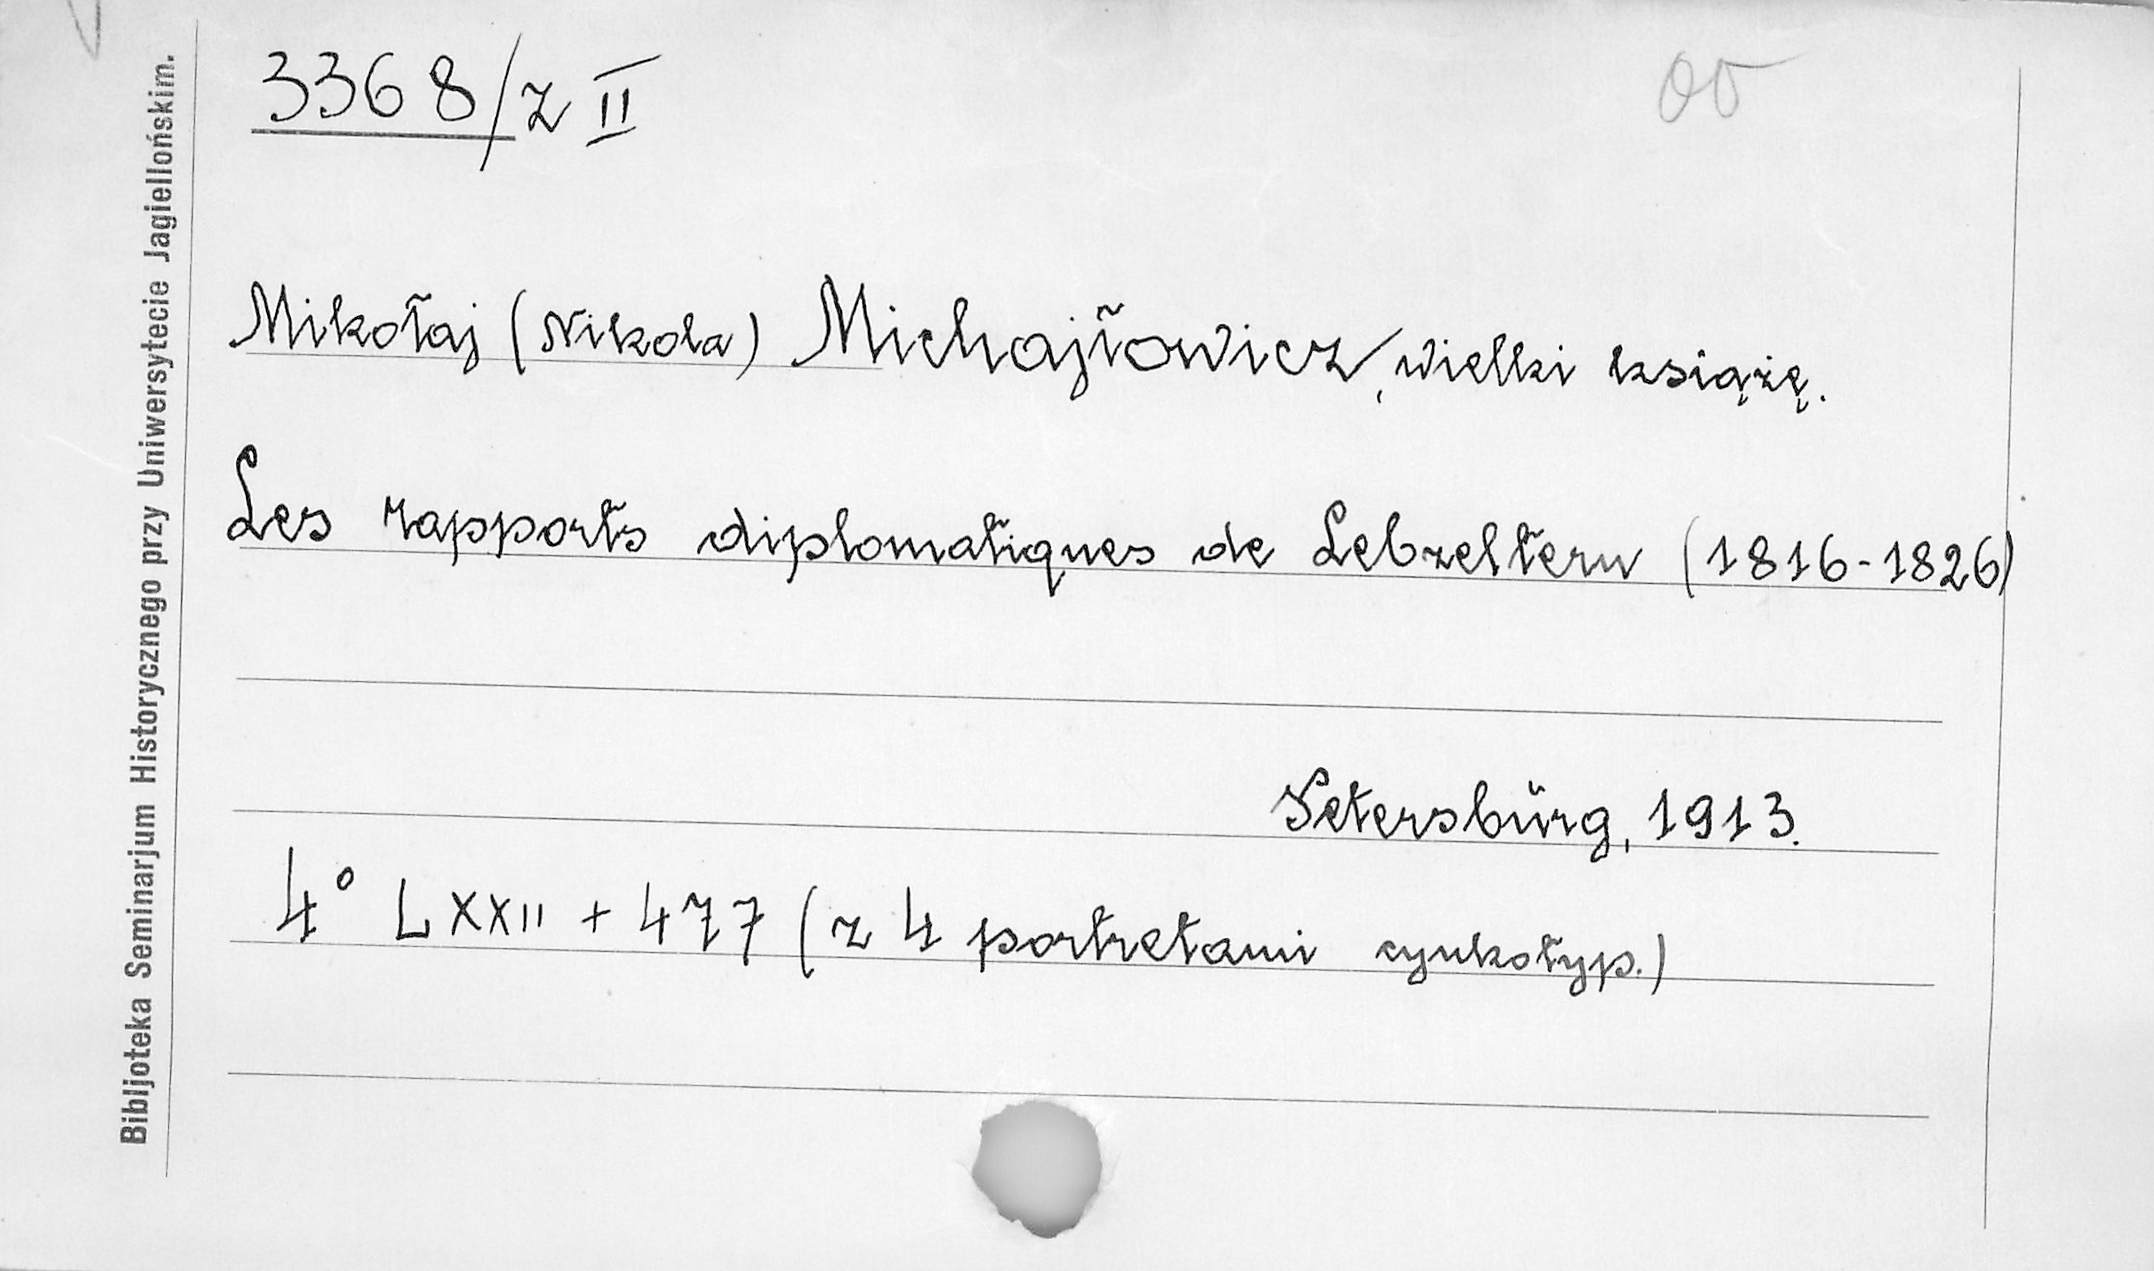 3368/z II
oo
Mikołaj (Nikola) Michajłowicz, wielki książę.
Les rapports diplomatiques de Lebzeltern (1816-1826)
Petersbürg, 1913.
4° LXXII + 477 (z 4 portretami cynkotyp.)
Bibljoteka Seminarjum Historycznego przy Uniwersytecie Jagiellońskim.